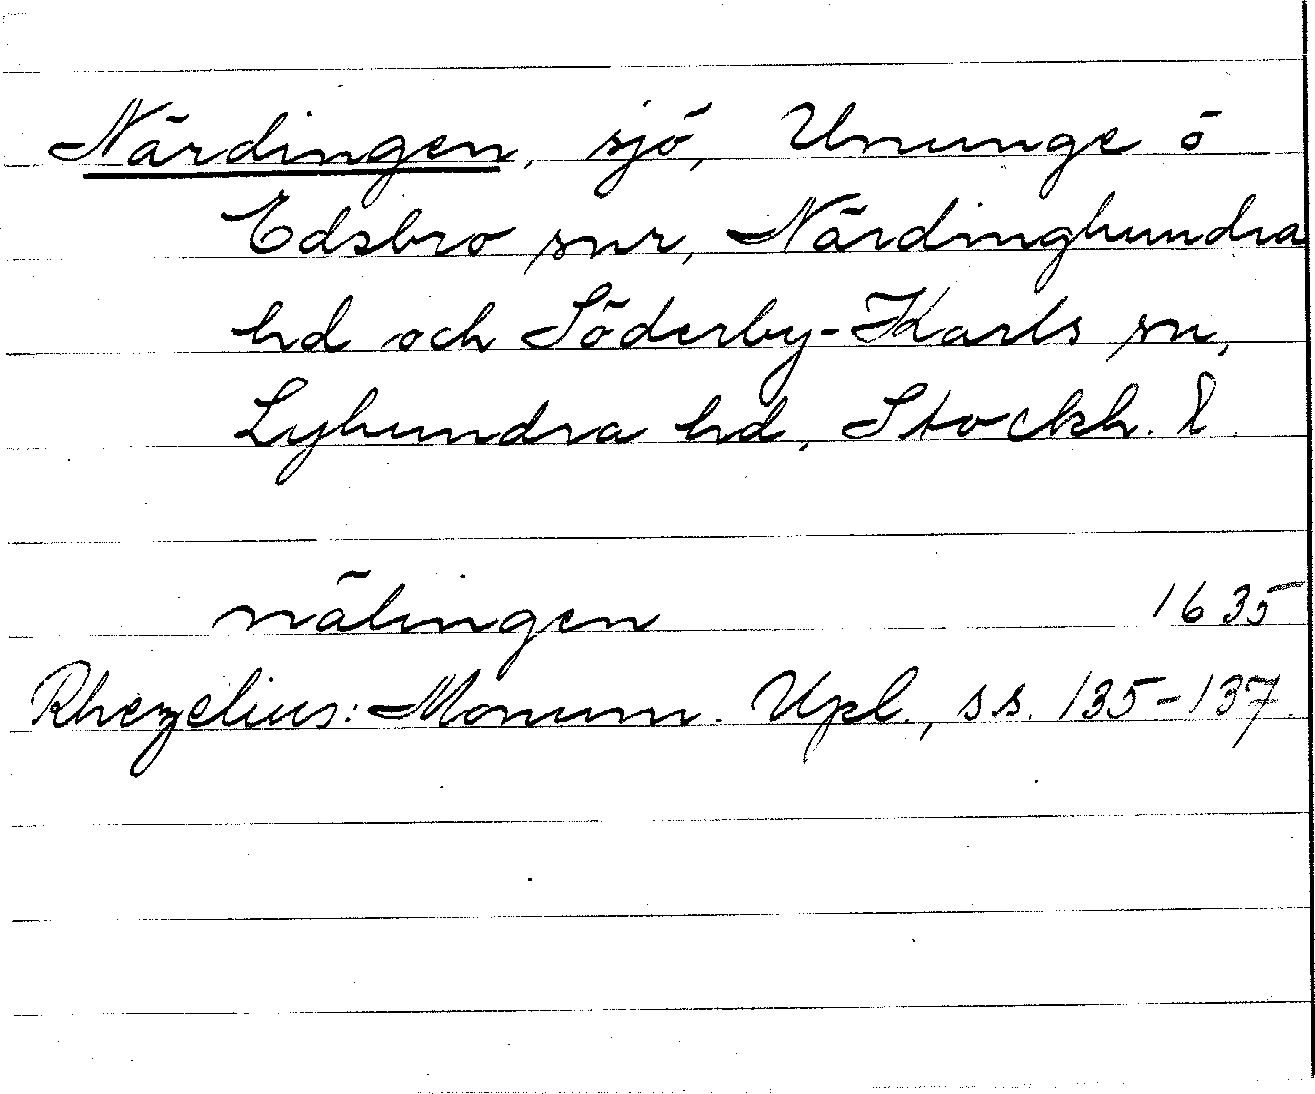 Närdingen, sjö, Ununge o
Edsbro snr, Närdinghundra
hd och Söderby-Karls sn,
Lyhundra hd, Stockh. l.
nälingen 1635
Rhezelius: Monum. Upl., ss. 135-137.